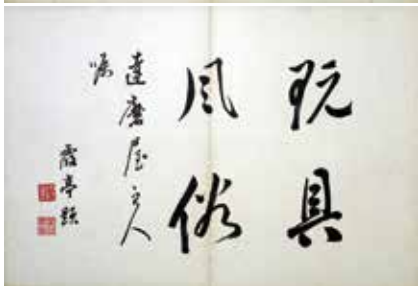 玩具
風俗
達磨屋主人
嘱
霞亭題